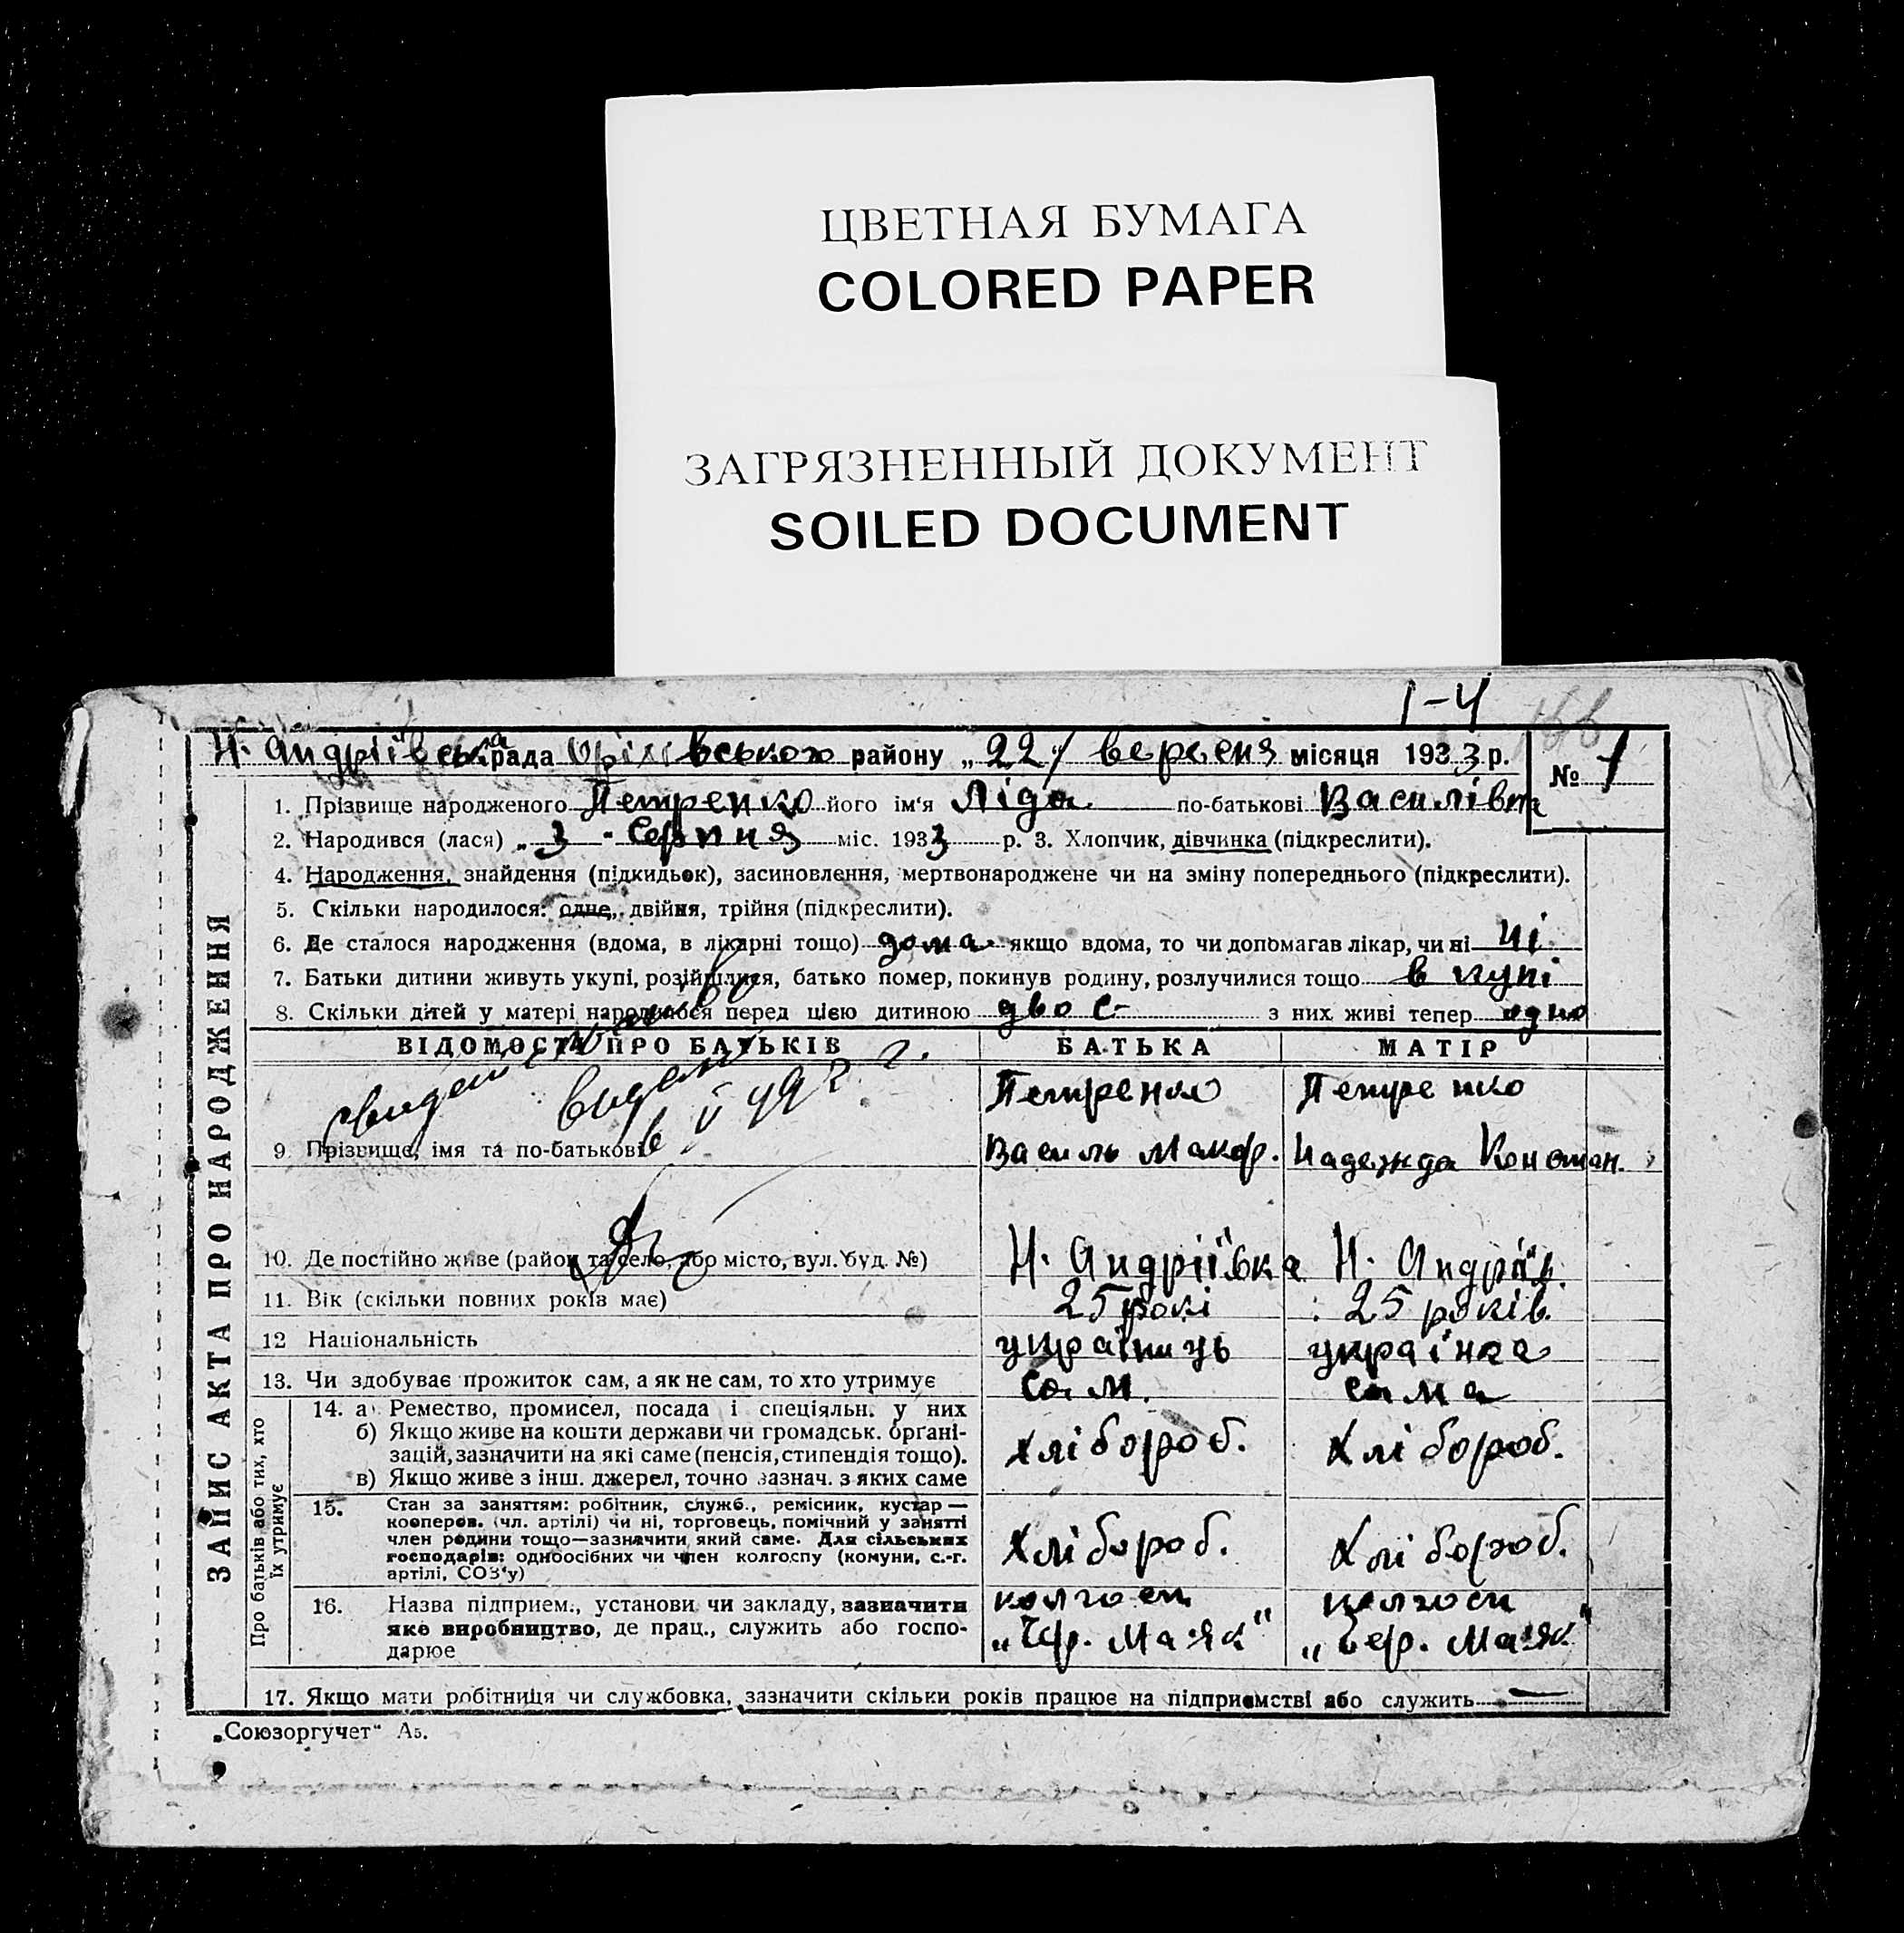 ЦВЕТНАЯ БУМАГА
COLORED PAPER
ЗАГРЯЗНЕННЫЙ ДОКУМЕНТ
SOILED DOCUMENT
1-4
Н. Андріївська рада Оріхівського району „22" вересня місяця 1933 р.
№ 1
1. Прізвище народженого Петренко його ім'я Ліда по-батькові Василівна
2. Народився (лася) „3 - Серпня міс. 1933 р. 3. Хлопчик, дівчинка (підкреслити).
4. Народження, знайдення (підкидьок), засиновлення, мертвонароджене чи на зміну попереднього (підкреслити).
5. Скільки народилося: одне, двійня, трійня (підкреслити).
6. Де сталося народження (вдома, в лікарні тощо) дома якщо вдома, то чи допомагав лікар, чи ні ні
7. Батьки дитини живуть укупі, розійшлися, батько помер, покинув родину, розлучилися тощо в купі
8. Скільки дітей у матері народилося перед цією дитиною двоє з них живі тепер одно
ЗАПИС АКТА ПРО НАРОДЖЕННЯ
ВІДОМОСТІ ПРО БАТЬКІВ БАТЬКА МАТІР
Петренко Петренко
9. Прізвище, імя та по-батькові Василь Макар. Надежда Констан.
10. Де постійно живе (район та село, або місто, вул. буд. №) Н. Андріївка Н. Андріїв.
11. Вік (скільки повних років має) 25 рокі 25 років.
12 Національність українць українка
13. Чи здобуває прожиток сам, а як не сам, то хто утримує сам. сама
Про батьків або тих, хто їх утримує
14. а) Ремество, промисел, посада і спеціяльн. у них
б) Якщо живе на кошти держави чи громадськ. органі-
зацій, зазначити на які саме (пенсія, стипендія тощо).
в) Якщо живе з інш. джерел, точно зазнач. з яких саме
хлібороб. хлібороб.
15. Стан за заняттям: робітник, служб., ремісник, кустар —
кооперов. (чл. артілі) чи ні, торговець, помічний у занятті
член родини тощо—зазначити який саме. Для сільських
господарів: одноосібних чи член колгоспу (комуни, с.-г.
артілі, СОЗ'у)
хлібороб. хлібороб.
16. Назва підприєм., установи чи закладу, зазначити
яке виробництво, де прац., служить або госпо-
дарює
колгосп колгосп
„Чер. Маяк" „Чер. Маяк"
17. Якщо мати робітниця чи службовка, зазначити скільки років працює на підприємстві або служить —
„Союзоргучет" А5.